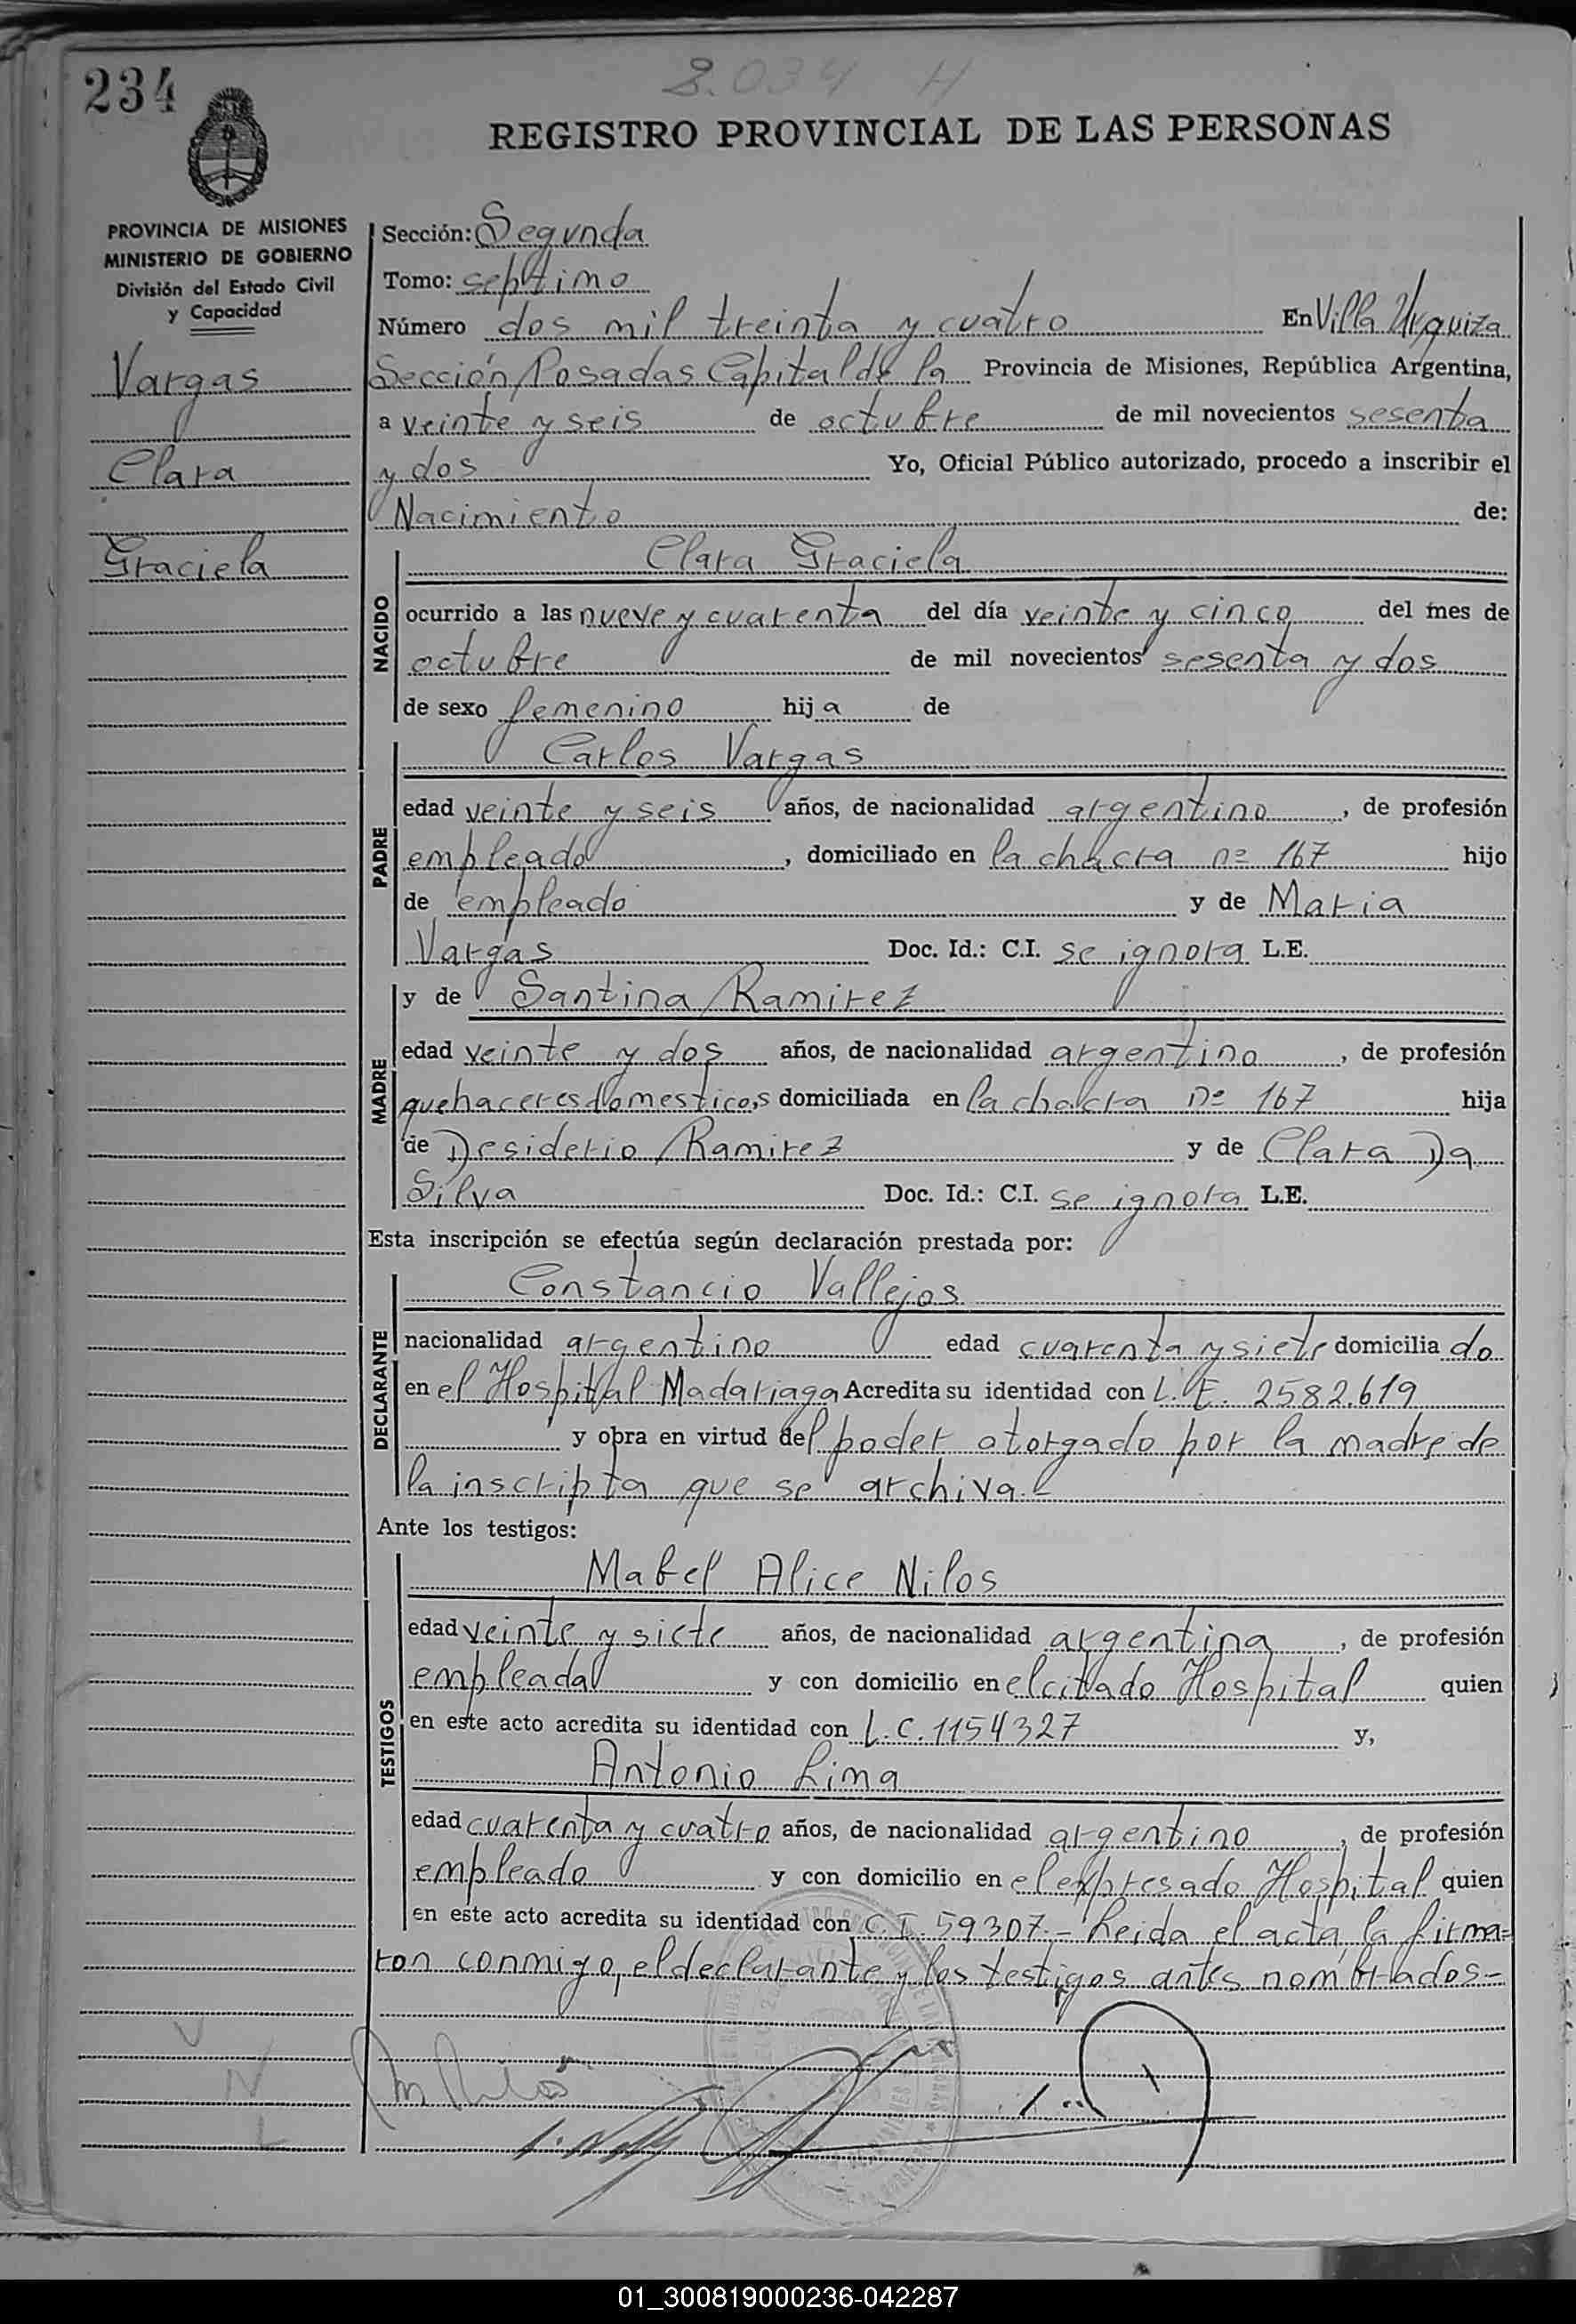 234
2.034 H
REGISTRO PROVINCIAL DE LAS PERSONAS
PROVINCIA DE MISIONES
MINISTERIO DE GOBIERNO
División del Estado Civil
y Capacidad
Vargas
Clara
Graciela
Sección: Segunda
Tomo: septimo
Número dos mil treinta y cuatro En Villa Urquiza
Sección Posadas Capital de la Provincia de Misiones, República Argentina,
a veinte y seis de octubre de mil novecientos sesenta
y dos Yo, Oficial Público autorizado, procedo a inscribir el
Nacimiento de:
NACIDO
Clara Graciela
ocurrido a las nueve y cuarenta del día veinte y cinco del mes de
octubre de mil novecientos sesenta y dos
de sexo femenino hija de
PADRE
Carlos Vargas
edad veinte y seis años, de nacionalidad argentino, de profesión
empleado, domiciliado en la chacra nº 167 hijo
de empleado y de Maria
Vargas Doc. Id.: C.I. se ignora L.E.
MADRE
y de Santina Ramirez
edad veinte y dos años, de nacionalidad argentino, de profesión
quehaceres domesticos domiciliada en la chacra nº 167 hija
de Desiderio Ramirez y de Clara Da
Silva Doc. Id.: C.I. se ignora L.E.
Esta inscripción se efectúa según declaración prestada por:
DECLARANTE
Constancio Vallejos
nacionalidad argentino edad cuarenta y siete domiciliado
en el Hospital Madariaga Acredita su identidad con L.E. 2582.619
y obra en virtud del poder otorgado por la madre de
la inscripta que se archiva-
Ante los testigos:
TESTIGOS
Mabel Alice Nilos
edad veinte y siete años, de nacionalidad argentina, de profesión
empleada y con domicilio en el citado Hospital quien
en este acto acredita su identidad con L.C. 1154327 y,
Antonio Lima
edad cuarenta y cuatro años, de nacionalidad argentino, de profesión
empleado y con domicilio en el expresado Hospital quien
en este acto acredita su identidad con C.I. 59307.- Leida el acta, la firma=
ron conmigo, el declarante y los testigos antes nombrados-
01_300819000236-042287